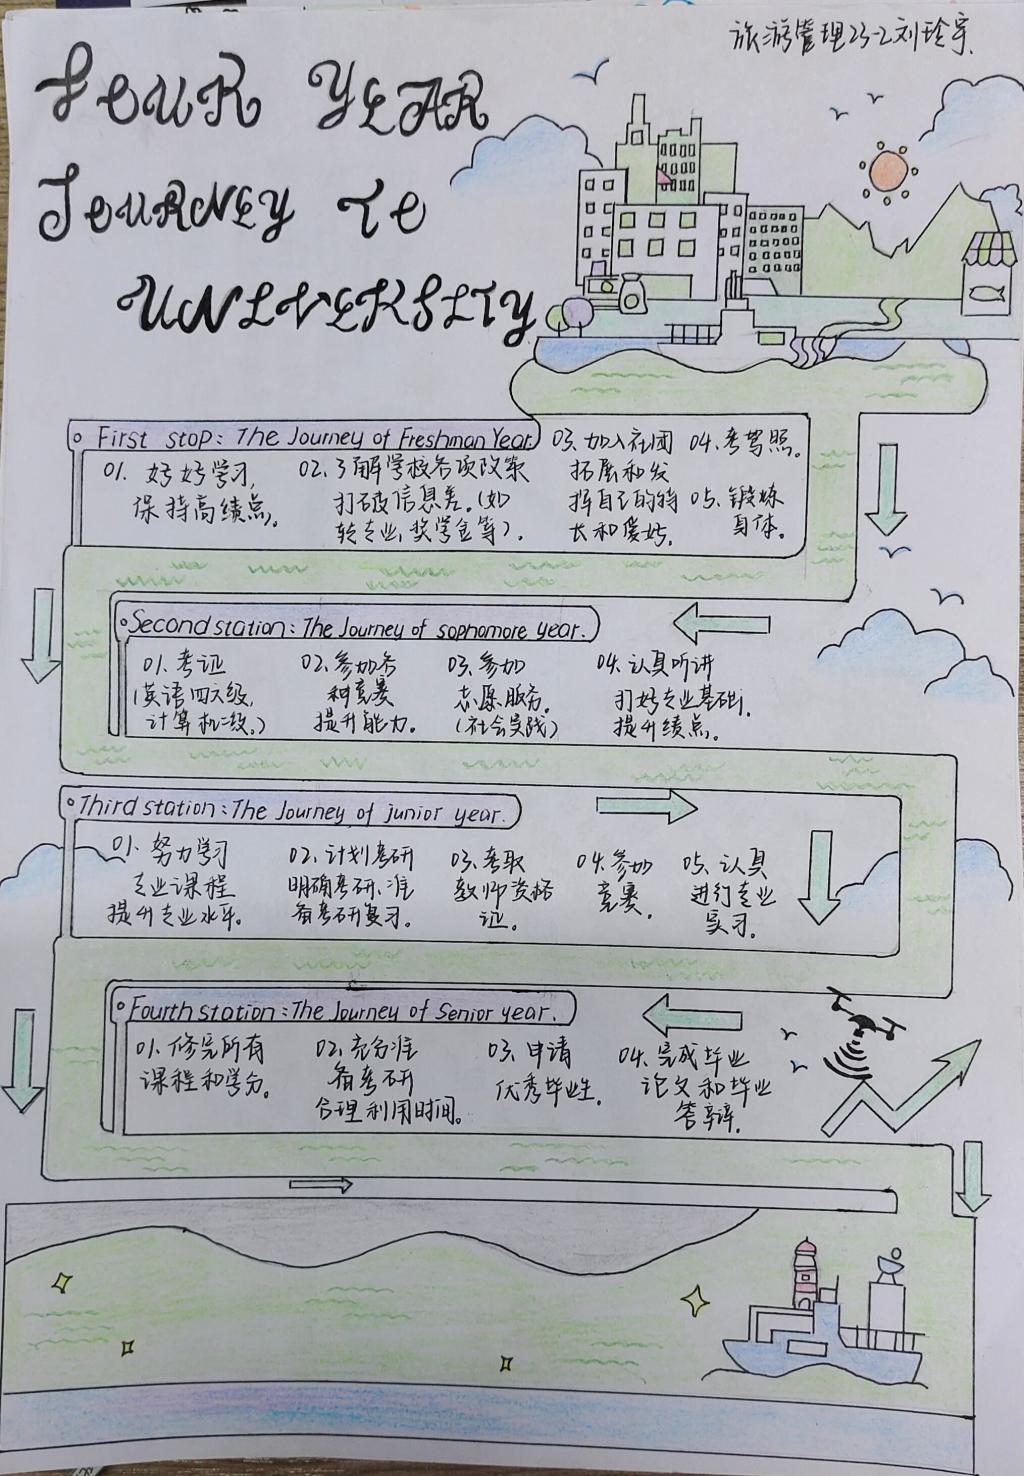 旅游管理23-2刘玲宇
FOUR YEAR
JOURNEY TO
UNIVERSITY
First stop: The Journey of Freshman Year.
01. 好好学习,
保持高绩点。
02. 了解学校各项政策
打破信息差。(如
转专业,奖学金等).
03. 加入社团
拓展和发
挥自己的特
长和爱好.
04. 考驾照。
05. 锻炼
身体.
Second station: The Journey of sophomore year.
01. 考证
(英语四六级,
计算机二级.)
02. 参加各
种竞赛
提升能力.
03. 参加
志愿服务.
(社会实践)
04. 认真听讲
打好专业基础.
提升绩点.
Third station: The Journey of junior year.
01. 努力学习
专业课程
提升专业水平.
02. 计划考研
明确考研、准
备考研复习.
03. 考取
教师资格
证.
04. 参加
竞赛.
05. 认真
进行专业
实习.
Fourth station: The Journey of Senior year.
01. 修完所有
课程和学分.
02. 充分准
备考研
合理利用时间。
03. 申请
优秀毕业生.
04. 完成毕业
论文和毕业
答辩.